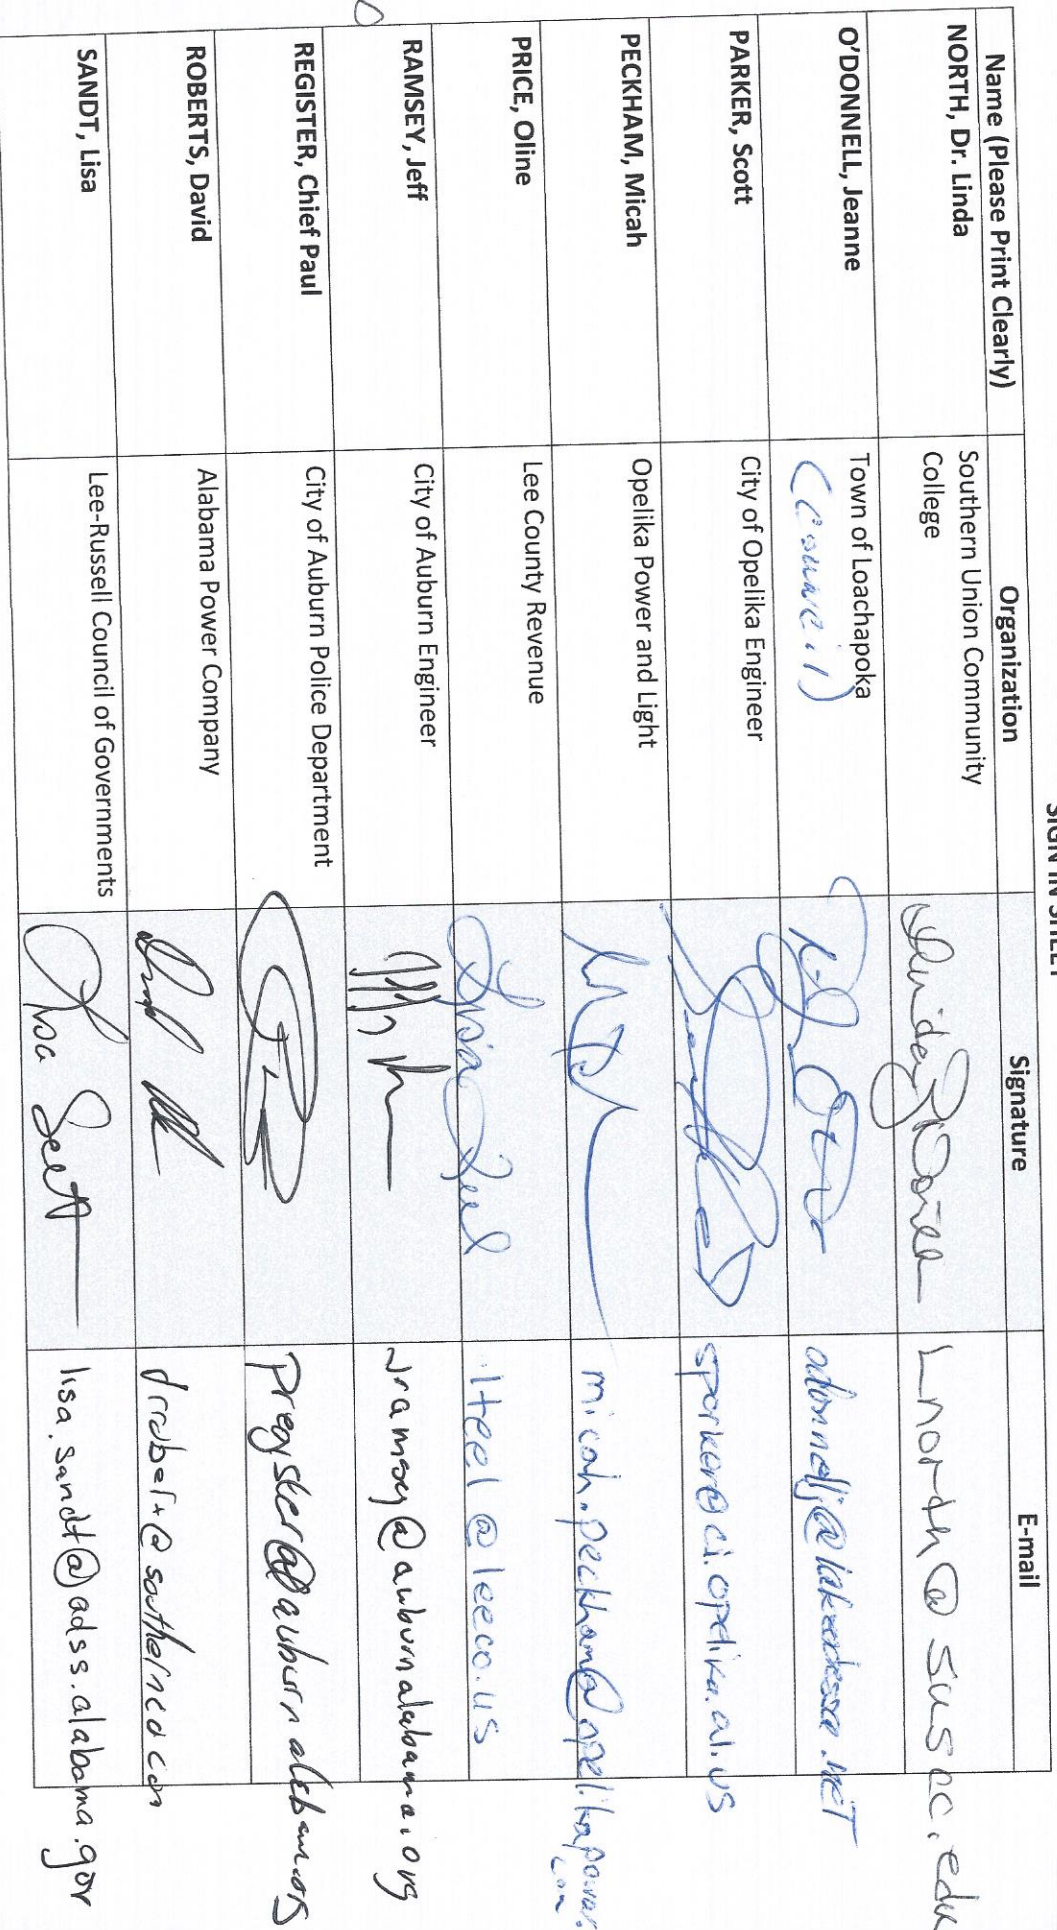 SIGN IN SHEET
Name (Please Print Clearly) Organization Signature E-mail
NORTH, Dr. Linda Southern Union Community College Lnorth@suscc.edu
O'DONNELL, Jeanne Town of Loachapoka (Council)
PARKER, Scott City of Opelika Engineer sparker@ci.opelika.al.us
PECKHAM, Micah Opelika Power and Light micah.peckham@opelikapower.com
PRICE, Oline Lee County Revenue lteel@leeco.us
RAMSEY, Jeff City of Auburn Engineer jramsey@auburnalabama.org
REGISTER, Chief Paul City of Auburn Police Department pregister@auburnalabama.org
ROBERTS, David Alabama Power Company drrobert@southernco.com
SANDT, Lisa Lee-Russell Council of Governments Lisa lisa.sandt@adss.alabama.gov